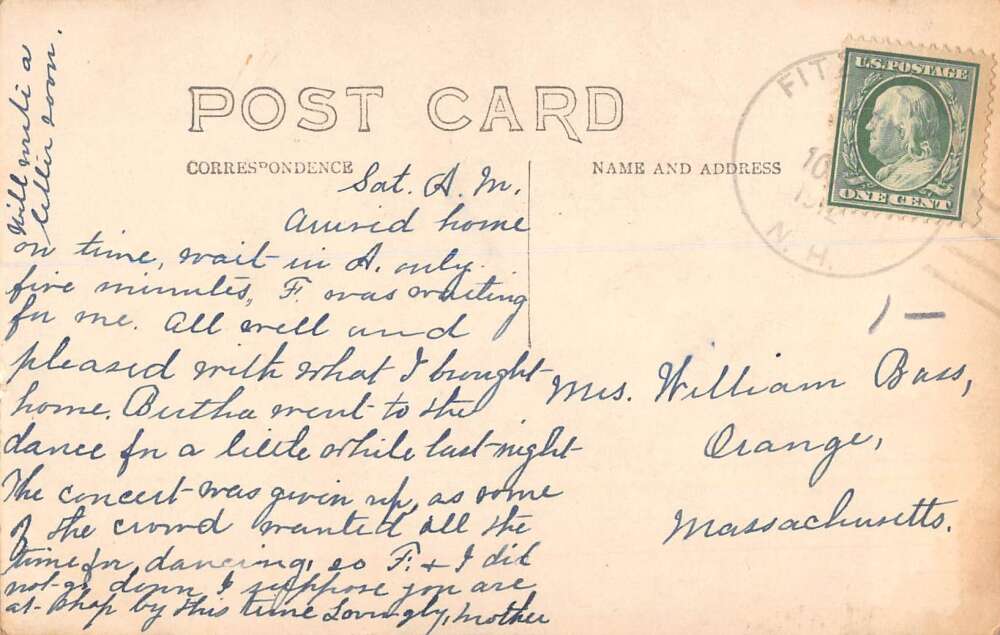 Will write a
letter soon.
POST CARD
CORRESPONDENCE
NAME AND ADDRESS
U.S. POSTAGE
ONE CENT
FITZ
10
1912
N. H.
1 —
Sat. A. M.
Arrived home
on time, wait in A. only
five minutes, F. was waiting
for me. All well and
pleased with what I brought
home. Bertha went to the
dance for a little while last night
The concert was given up, as some
of the crowd wanted all the
time for dancing, so F. & I did
not go down I suppose you are
at shop by this time Lovingly, Mother
Mrs. William Bass,
Orange,
Massachusetts.